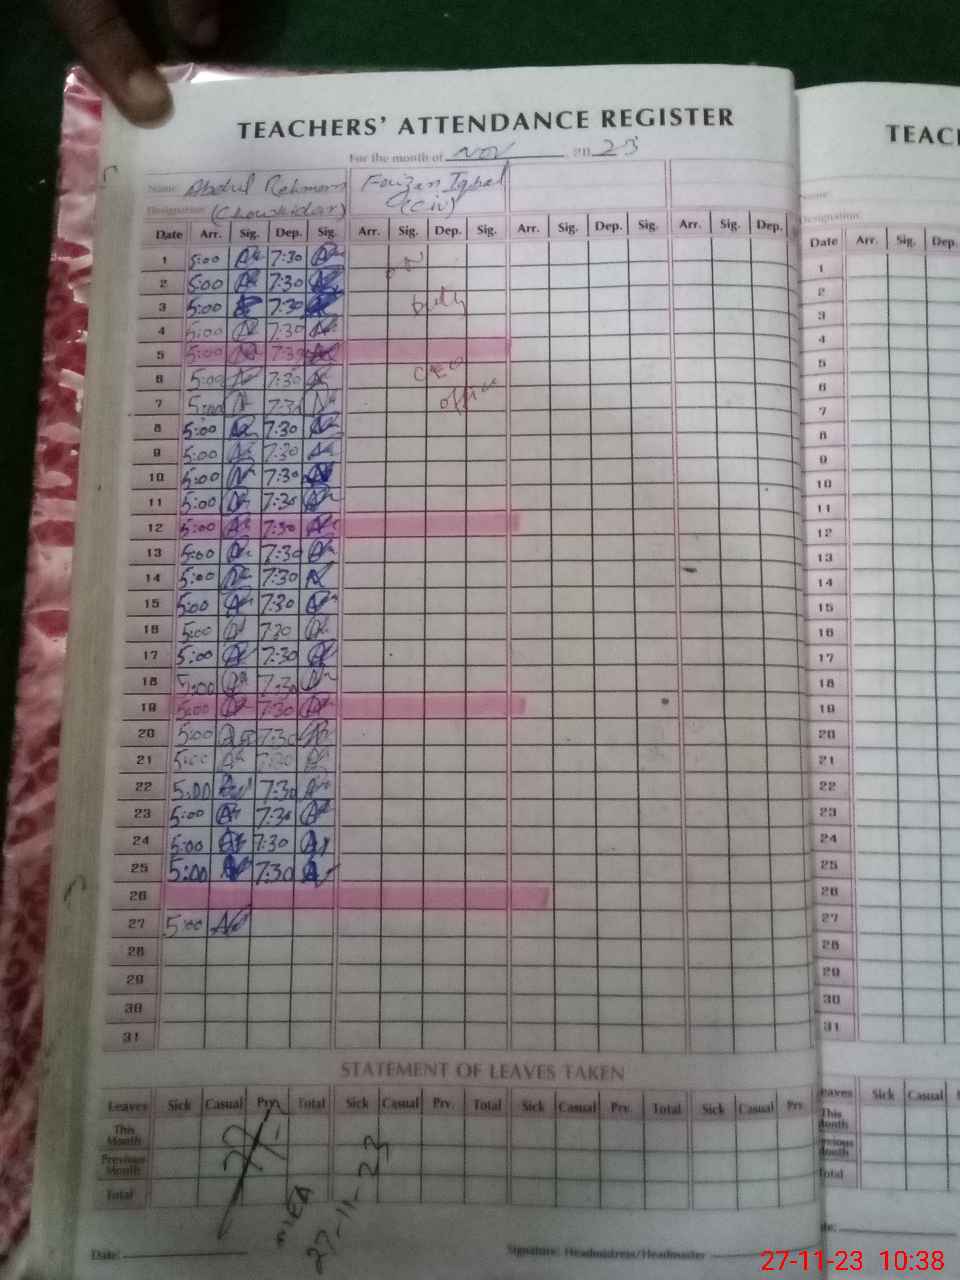 TEACHERS' ATTENDANCE REGISTER
For the month of Nov 2023
Name: Abdul Rehman Faizan Iqbal
Designation: (Chowkidar) (Civ)
Date Arr. Sig. Dep. Sig. Arr. Sig. Dep. Sig. Arr. Sig. Dep. Sig. Arr. Sig. Dep.
1 5:00 7:30 on
2 5:00 7:30
3 5:00 7:30 Duty
4 5:00 7:30
5 5:00 7:30
6 5:00 7:30 CEO
7 5:00 7:30 office
8 5:00 7:30
9 5:00 7:30
10 5:00 7:30
11 5:00 7:30
12 5:00 7:30
13 5:00 7:30
14 5:00 7:30
15 5:00 7:30
16 5:00 7:30
17 5:00 7:30
18 5:00 7:30
19 5:00 7:30
20 5:00 7:30
21 5:00 7:30
22 5:00 7:30
23 5:00 7:30
24 5:00 7:30
25 5:00 7:30
26
27 5:00
28
29
30
31
STATEMENT OF LEAVES TAKEN
Leaves Sick Casual Prv. Total Sick Casual Prv. Total Sick Casual Prv. Total Sick Casual Prv.
This Month
Previous Month
Total
MEA
27-11-23
Date: Signature: Headmistress/Headmaster
TEAC
Name:
Designation:
Date Arr. Sig. Dep.
1
2
3
4
5
6
7
8
9
10
11
12
13
14
15
16
17
18
19
20
21
22
23
24
25
26
27
28
29
30
31
Leaves Sick Casual
This
Month
Total
27-11-23 10:38